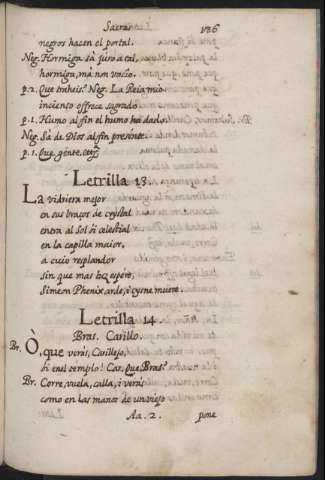 Sacras 126
negros hacen el portal.
Neg. Hormiga sà juro a tal,
hormiga, mà non vacio.
p. 2. Que traheis? Neg. La Reia mio
inciento ofrece sagrado
p. 1. Humo al fin el humo ha dado.
Neg. Sà de Dios al fin presente.
p. 1. Que gente, etc.
Letrilla 13.
La vidriera mejor
en sus braços de crystal
entra al Sol oi celestial
en la capilla maior,
a cuio resplandor
sin que mas luz espere,
Simeon Phenix arde, i cysne muere.
Letrilla 14
Bras. Carillo.
Br. Ò, que veràs, Carillejo,
oi en el templo! Car. que Bras?
Br. Corre, vuela, calla, i veràs
como en las manos de un viejo
Aa. 2. pone